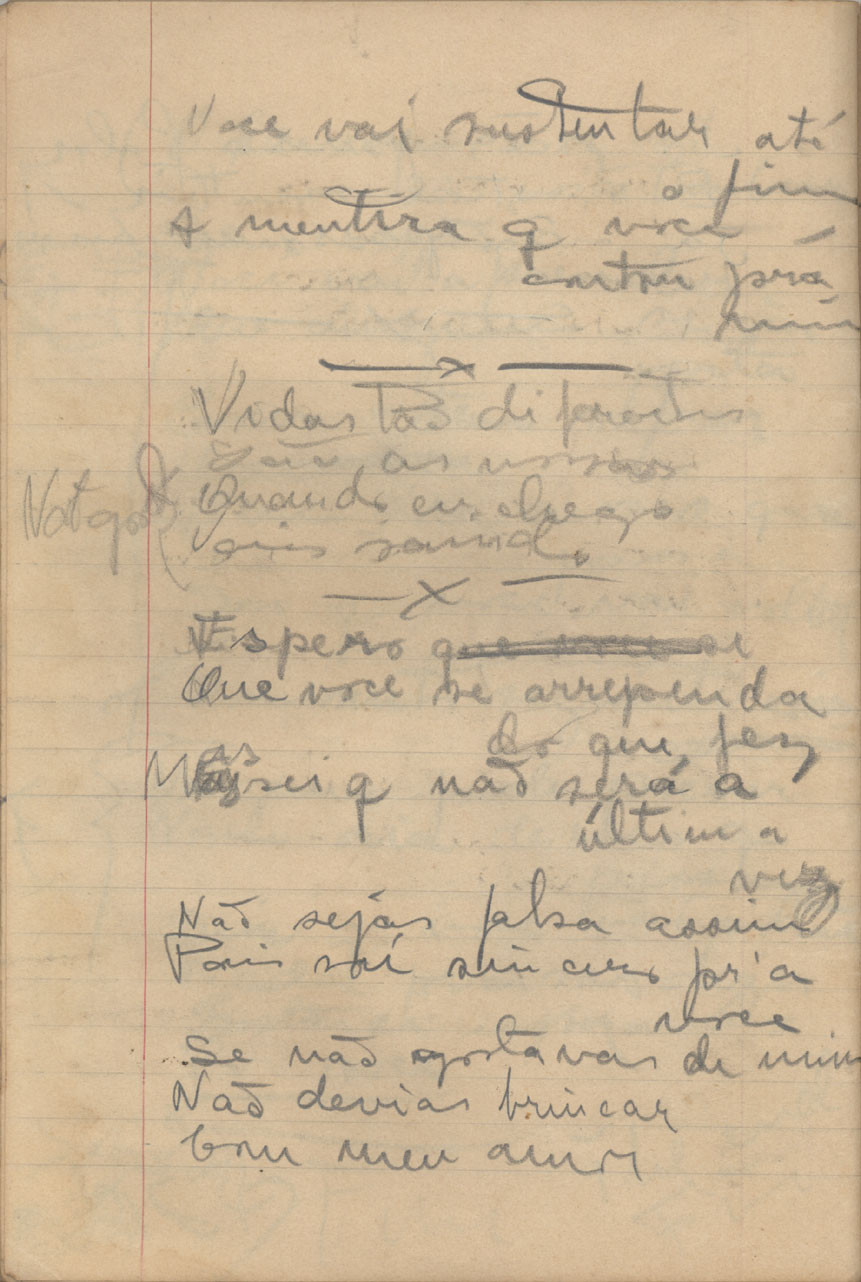 Voce vai sustentar até
o fim
A mentira q voce
contou prá
mim
Vidas tão diferentes
São as nossas
Quando eu chego
vais saindo
Espero que voce se
Que voce se arrependa
do que fez
Mas sei q não será a
última
vez
Não sejas falsa assim
Pois sou sincero pr'a
voce
Se não gostavas de mim
Não devias brincar
Com meu amor